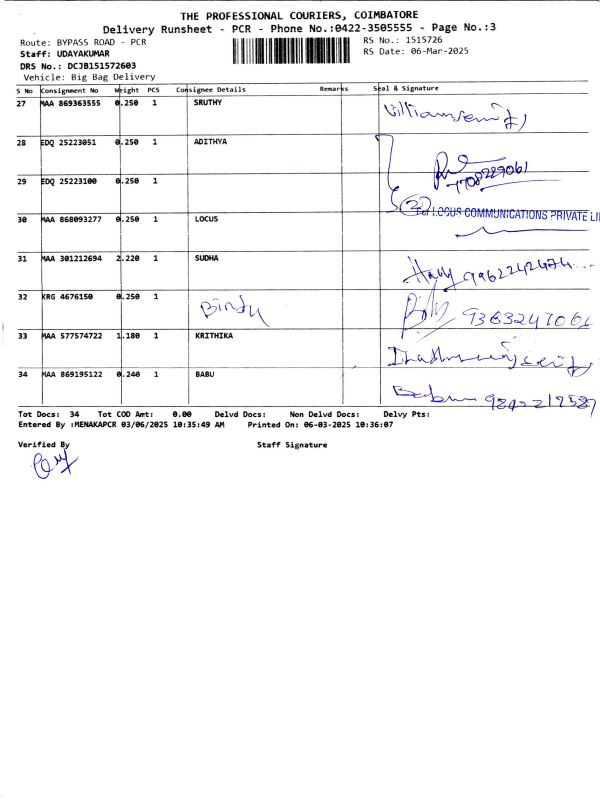 THE PROFESSIONAL COURIERS, COIMBATORE
Delivery Runsheet - PCR - Phone No.:0422-3505555 - Page No.:3
Route: BYPASS ROAD - PCR
RS No.: 1515726
Staff: UDAYAKUMAR
RS Date: 06-Mar-2025
DRS No.: DCJB151572603
Vehicle: Big Bag Delivery
S No Consignment No Weight PCS Consignee Details Remarks Seal & Signature
27 MAA 869363555 0.250 1 SRUTHY
28 EDQ 25223051 0.250 1 ADITHYA
29 EDQ 25223100 0.250 1
30 MAA 868093277 0.250 1 LOCUS
LOCUS COMMUNICATIONS PRIVATE LI
31 MAA 301212694 2.220 1 SUDHA
32 KRG 4676150 0.250 1 Bindu
33 MAA 577574722 1.180 1 KRITHIKA
34 MAA 869195122 0.240 1 BABU
Tot Docs: 34 Tot COD Amt: 0.00 Delvd Docs: Non Delvd Docs: Delvy Pts:
Entered By :MENAKAPCR 03/06/2025 10:35:49 AM Printed On: 06-03-2025 10:36:07
Verified By Staff Signature